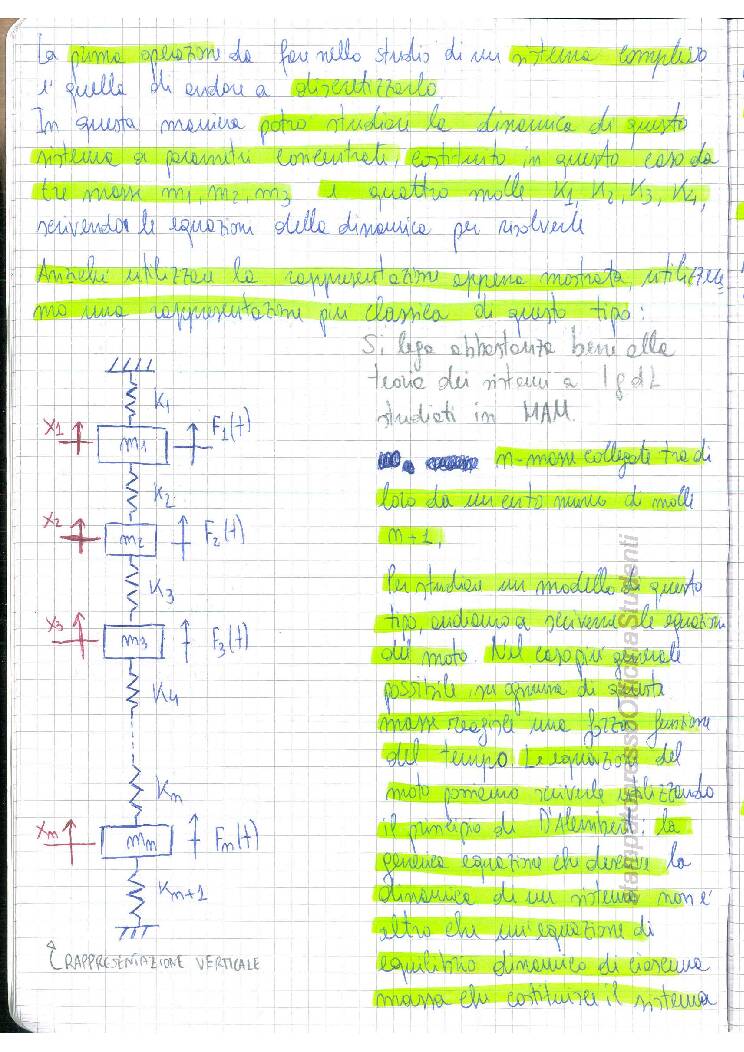 La prima operazione da fare nello studio di un sistema complesso
è quella di andare a discretizzarlo
In questa maniera potrò studiare la dinamica di questo
sistema a parametri concentrati, costituito in questo caso da
tre masse m1, m2, m3 e quattro molle K1, K2, K3, K4,
scrivendo le equazioni della dinamica per risolverle
Anziché utilizzare la rappresentazione appena mostrata, utilizzere
mo una rappresentazione più classica di questo tipo:
Si lega abbastanza bene alla
teoria dei sistemi a 1 gdL
studiati in MAM.
K1
X1
m1
F1(t)
K2
X2
m2
F2(t)
K3
X3
m3
F3(t)
K4
Kn
Xm
mn
Fm(t)
Km+1
RAPPRESENTAZIONE VERTICALE
n-masse collegate tra di
loro da un certo numero di molle
n+1,
Per studiare un modello di questo
tipo, andiamo a scrivere le equazioni
del moto. Nel caso più generale
possibile, su ognuna di queste
masse reagisce una forza funzione
del tempo. Le equazioni del
moto possiamo scriverle utilizzando
il principio di D'Alembert: la
generica equazione che descrive la
dinamica di un sistema non è
altro che un'equazione di
equilibrio dinamico di ciascuna
massa che costituisce il sistema
stampato presso Officina Studenti